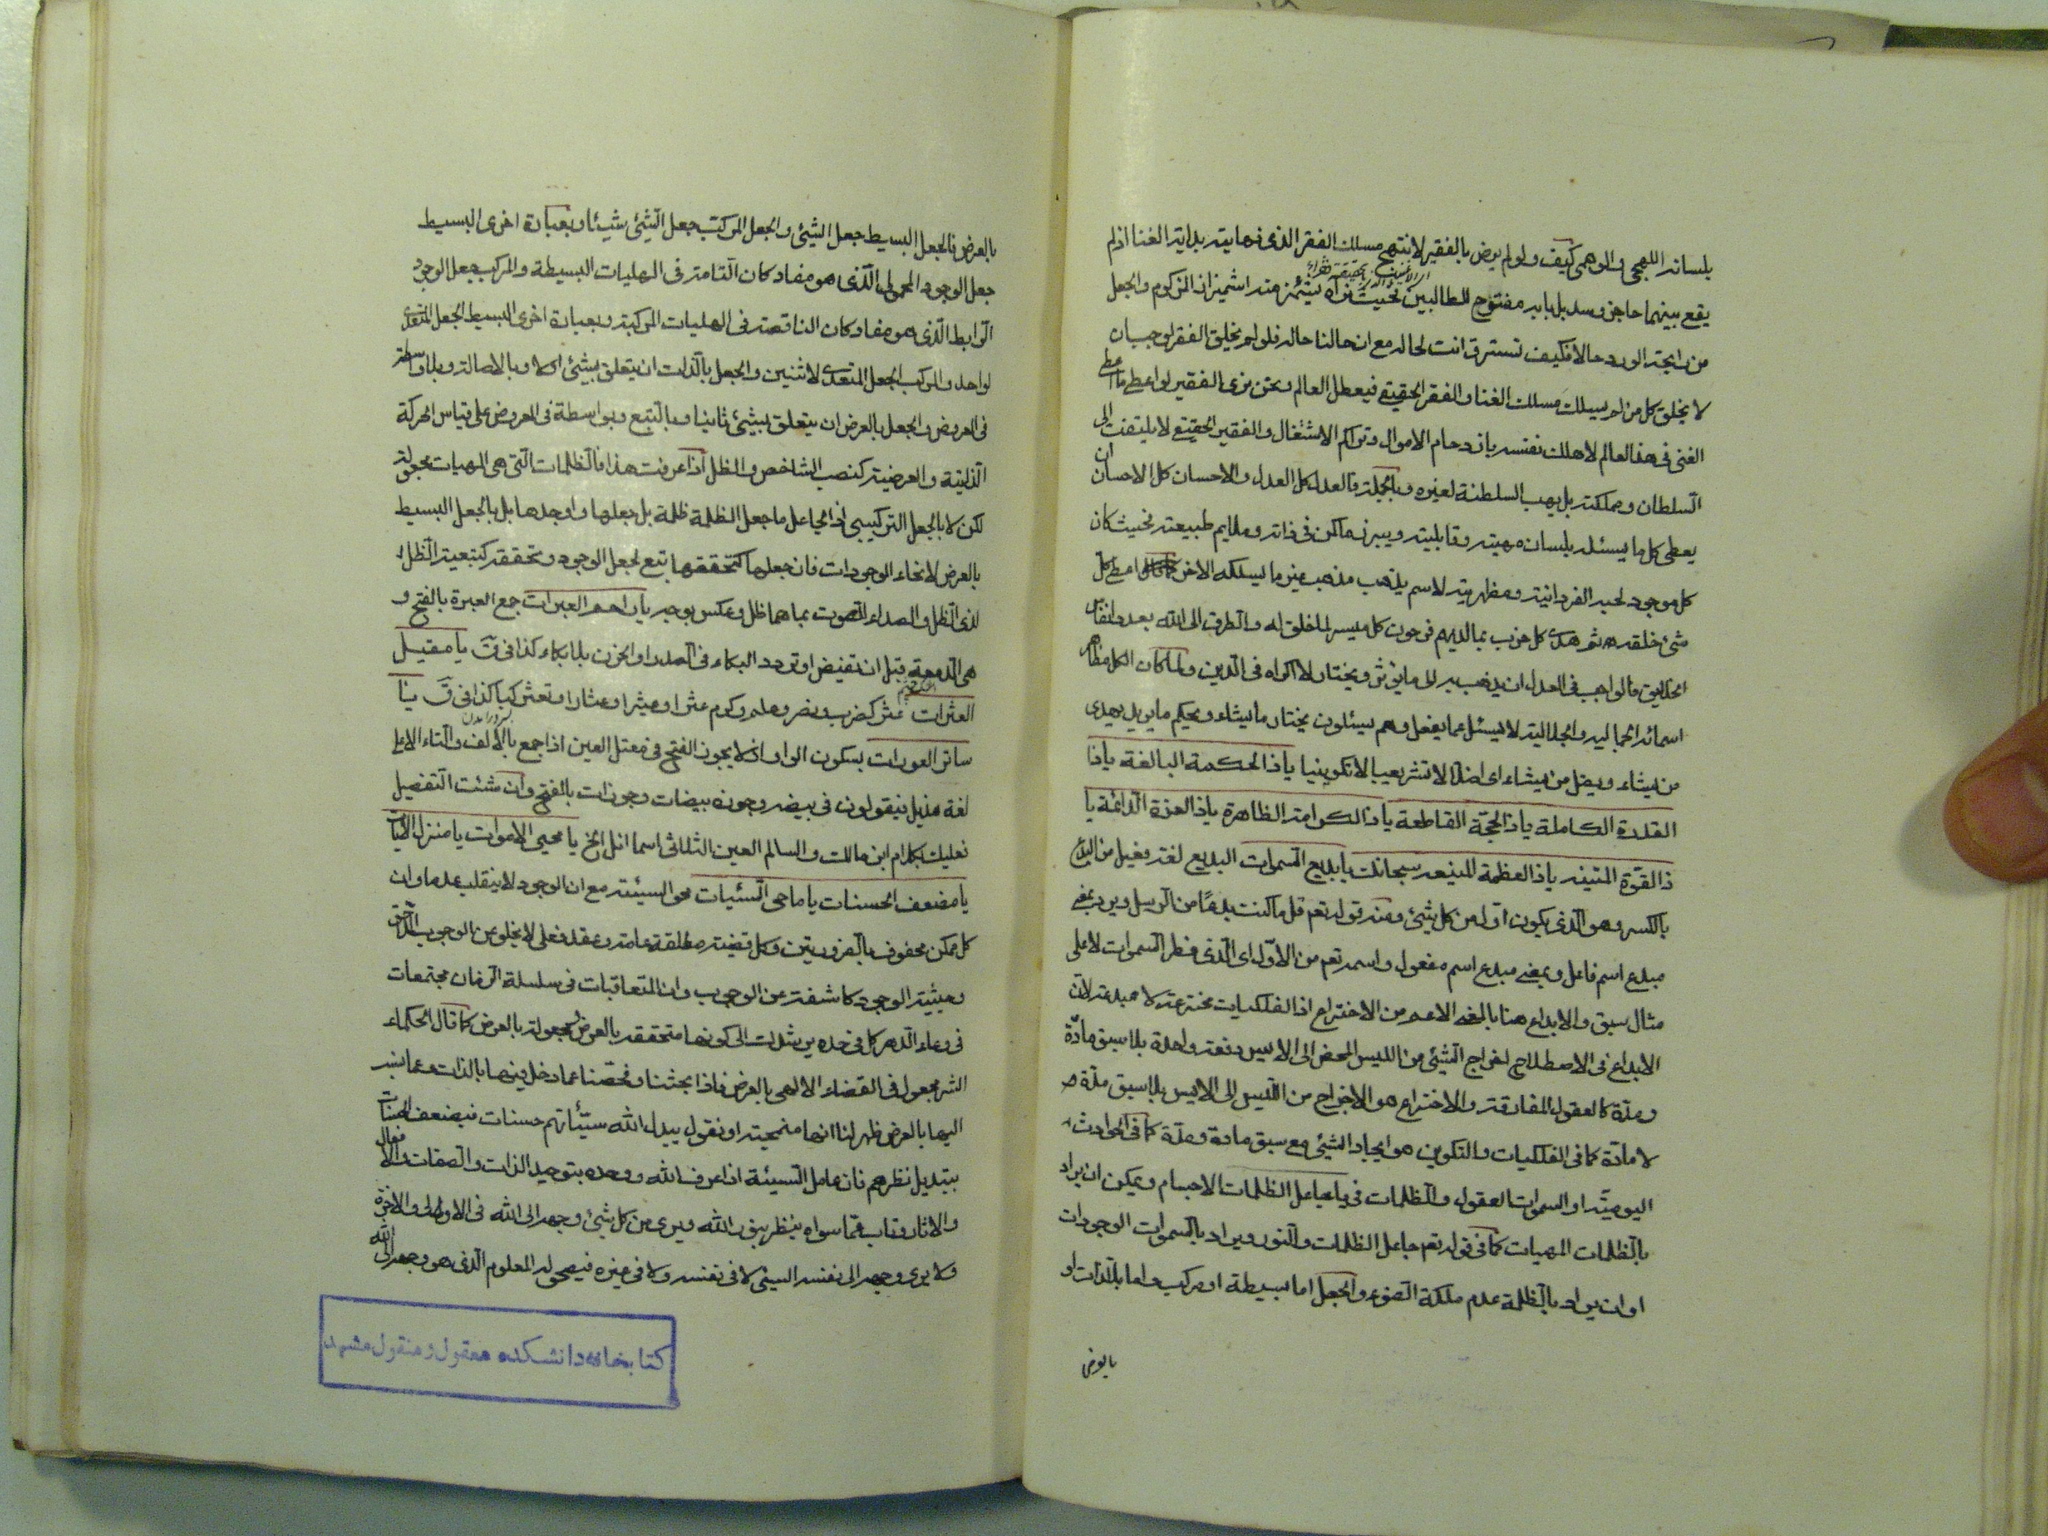 بلسانه اللهجى والوهمى كيف ولو لم يرض بالفقير لانتهج مسلك الفقر الذى نهايته بداية الغنا اذ لم
يقع بينهما حاجز وسد بل بابه مفتوح للطالبين بحيث نراه يشمئز منه اشميزاز المزكوم والجعل
من رايحة الورد حالا فكيف تسترق انت لحاله مع ان حالنا حاله فلو لم يخلق الفقر لوجب ان
لا يخلق كل من لم يسلك مسلك الغنا والفقر الحقيقى فيعطل العالم ونحن نرى الفقير لو اعطى ما اعطى
الغنى فى هذا العالم لاهلك نفسه بازدحام الاموال وتراكم الاشتغال والفقير الحقيقى لا يلتفت الى
السلطان ومملكته بل يهب السلطنة لغيره وبالجملة فالعدل كل العدل والاحسان كل الاحسان ان
يعطى كل ما يسئله بلسان مهيته وقابليته ويبرز ما كمن فى ذاته وملايم طبيعته فحيث كان
كل موجود لحبه الفردانية ومظهريته لاسم يذهب مذهب غير ما يسلكه الاخر اعطى كل
شئ خلقه ثم هدى كل حزب بما لديهم فرحون كل ميسر لما خلق له والطرق الى الله بعدد انفاس
الخلايق فالواجب فى العدل ان يذهب به الى ما يؤثر ويختار لا اكراه فى الدين ولما كان الكل مظاهر
اسمائه الجمالية والجلالية لا يسئل عما يفعل وهم يسئلون يختار ما يشاء ويحكم ما يريد يهدى
من يشاء ويضل من يشاء اى اضلالا لا تشريعيا لا تكوينيا يا ذا الحكمة البالغة يا ذا
القدرة الكاملة يا ذا الحجة القاطعة يا ذا الكرامة الظاهرة يا ذا العزة الدائمة يا
ذا القوة المتينة يا ذا العظمة المنيعة سبحانك يا بديع السموات البديع لغة فعيل من البدع
بالكسر وهو الذى يكون اول من كل شئ ومنه قوله تعم قل ما كنت بدعا من الرسل ويرد بمعنى
مبدع اسم فاعل وبمعنى مبدع اسم مفعول واسمه تعم من الاول اى الذى فطر السموات لا على
مثال سبق والابداع هنا بالمعنى الاعم من الاختراع اذ الفلكيات مخترعة لا مبدعة لان
الابداع فى الاصطلاح اخراج الشئ من الليس المحض الى الايس دفعة واحدة بلا سبق مادة
ومدة كالعقول المفارقة والاختراع هو الاخراج من الليس الى الايس بلا سبق مدة
لا مادة كما فى الفلكيات والتكوين هو ايجاد الشئ مع سبق مادة ومدة كما فى الحوادث
اليومية او السموات العقول والظلمات فى يا جاعل الظلمات الاجسام ويمكن ان يراد
بالظلمات المهيات كما فى قوله تعم جاعل الظلمات والنور ويراد بالسموات الوجودات
او ان يراد بالظلمة عدم ملكة الضوء والجعل اما بسيطة او مركب واما بالذات او
بالعرض
بالعرض فالجعل البسيط جعل الشئ والجعل المركب جعل الشئ شيئا وبعبارة اخرى البسيط
جعل الوجود المحمولى الذى هو مفاد كان التامة فى الهليات البسيطة والمركب جعل الوجود
الرابط الذى هو مفاد كان الناقصة فى الهليات المركبة وبعبارة اخرى البسيط الجعل المتعدى
لواحد والمركب الجعل المتعدى لاثنين والجعل بالذات ان يتعلق بشئ اولا وبالاصالة وبلا واسطة
فى العروض والجعل بالعرض ان يتعلق بشئ ثانيا وبالتبع وبواسطة فى العروض على قياس الحركة
الذاتية والعرضية كنصب الشاخص والظل اذا عرفت هذا فالظلمات التى هى المهيات مجعولة
لكن لا بالجعل التركيبى اذ الجاعل ما جعل الظلمة ظلمة بل جعلها واوجدها بل بالجعل البسيط
بالعرض لانحاء الوجودات فان جعلها كتحققها بتبع لجعل الوجود وتحققه كتبعية الظل
لذى الظل والصداء للصوت بما هما ظل وعكس بوجه يا راحم العبرات جمع العبرة بالفتح و
هى الدمعة قبل ان تفيض او تردد البكاء فى الصدر او الحزن بلا بكاء كذا فى ق يا مقيل
العثرات عثر كضرب ونصر وعلم وكرم عثرا وعيثرا وعثارا وتعثر كبا كذا فى ق يا
ساتر العورات بسكون الواو اذ لا يجوز الفتح فى معتل العين اذا جمع بالالف والتاء الا على
لغة هذيل فيقولون فى بيضه وجوزه بيضات وجوزات بالفتح وان شئت التفصيل
فعليك بكلام ابن مالك والسالم العين الثلاثى اسما انل الخ يا محيى الاموات يا منزل الايات
يا مضعف الحسنات يا ماحى السئيات محو السيئة مع ان الوجود لا ينقلب عدما وان
كل ممكن محفوف بالضرورتين وكل قضية مطلقة عامة وعقد فعلى لا يخلو عن الوجوب اللاحق
وحيثية الوجود كاشفة عن الوجوب وان المتعاقبات فى سلسلة الزمان مجتمعات
فى وعاء الدهر كل فى حده يرشدك الى كونها متحققة بالعرض مجعولة بالعرض كما قال الحكماء
الشر مجعول فى القضاء الالهى بالعرض فاذا بحثنا وفحصنا عما دخل فيها بالذات وعما ينسب
اليها بالعرض ظهر لنا انها منمحية او نقول يبدل الله سيئاتهم حسنات فيضعف الحسنات
بتبديل نظرهم فان عامل السيئة اذا عرف الله ووحده بتوحيد الذات والصفات والافعال
والاثار وتاب عما سواه ينظر بنور الله ويرى من كل شئ وجهه الى الله فى الاولى والاخرة
ولا يرى وجهه الى نفسه السيئ لا فى نفسه ولا فى غيره فيمحو له المعلوم الذى هو وجهه الى الله
كتابخانه دانشكده معقول ومنقول مشهد